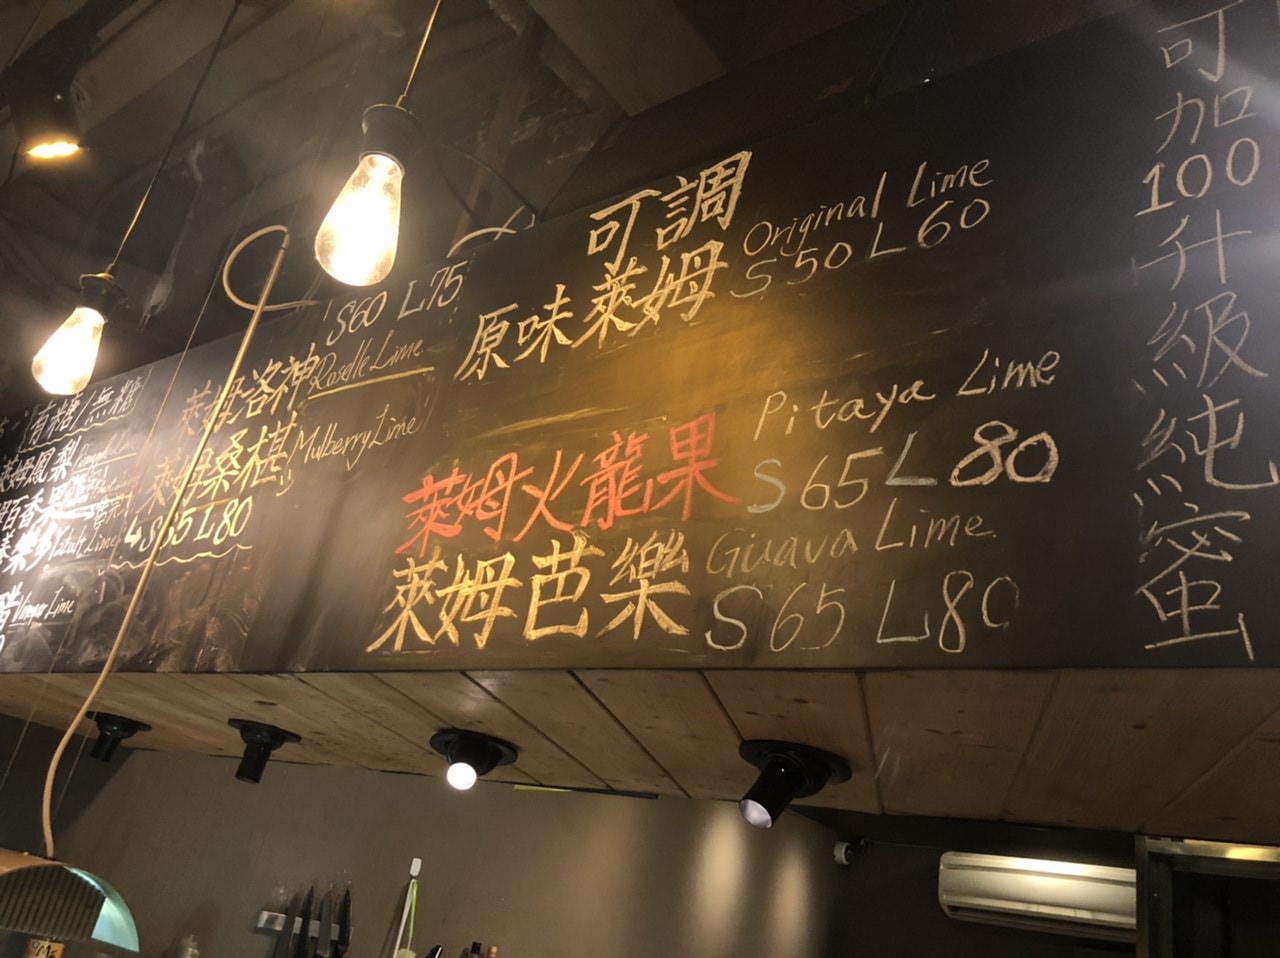 有糖/無糖
萊姆鳳梨
百香果
Vinegar Lime
S60 L75
萊姆洛神 Roselle Lime
萊姆桑椹 Mulberry Lime
S65 L80
可調
原味萊姆 Original Lime
S50 L60
萊姆火龍果 Pitaya Lime
S65 L80
萊姆芭樂 Guava Lime
S65 L80
可加100升級純蜜